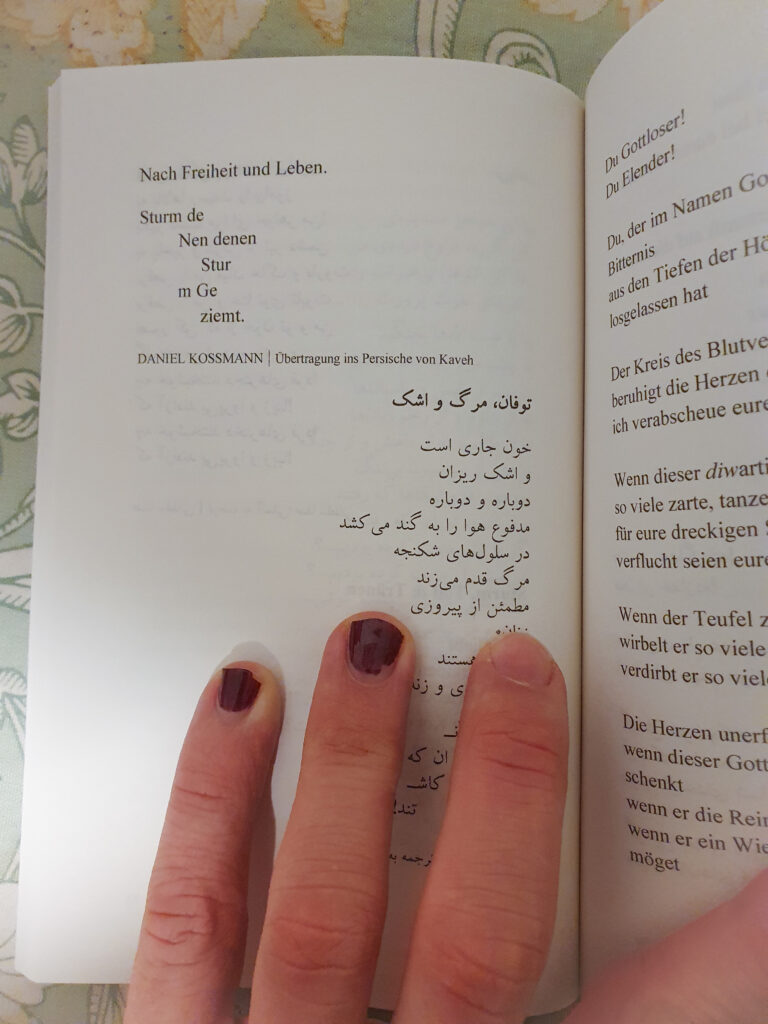 Nach Freiheit und Leben.
Sturm de
Nen denen
Stur
m Ge
ziemt.
DANIEL KOSSMANN | Übertragung ins Persische von Kaveh
توفان، مرگ و اشک
خون جاری است
و اشک ریزان
دوباره و دوباره
مدفوع هوا را به گند می‌کشد
در سلول‌های شکنجه
مرگ قدم می‌زند
مطمئن از پیروزی
هستند
ی و زند
ان که
کاشـ
تند!
Du Gottloser!
Du Elender!
Du, der im Namen Go
Bitternis
aus den Tiefen der Hö
losgelassen hat
Der Kreis des Blutve
beruhigt die Herzen
ich verabscheue eure
Wenn dieser diwarti
so viele zarte, tanze
für eure dreckigen S
verflucht seien eure
Wenn der Teufel z
wirbelt er so viele
verdirbt er so viel
Die Herzen unerf
wenn dieser Gott
schenkt
wenn er die Rein
wenn er ein Wie
möget